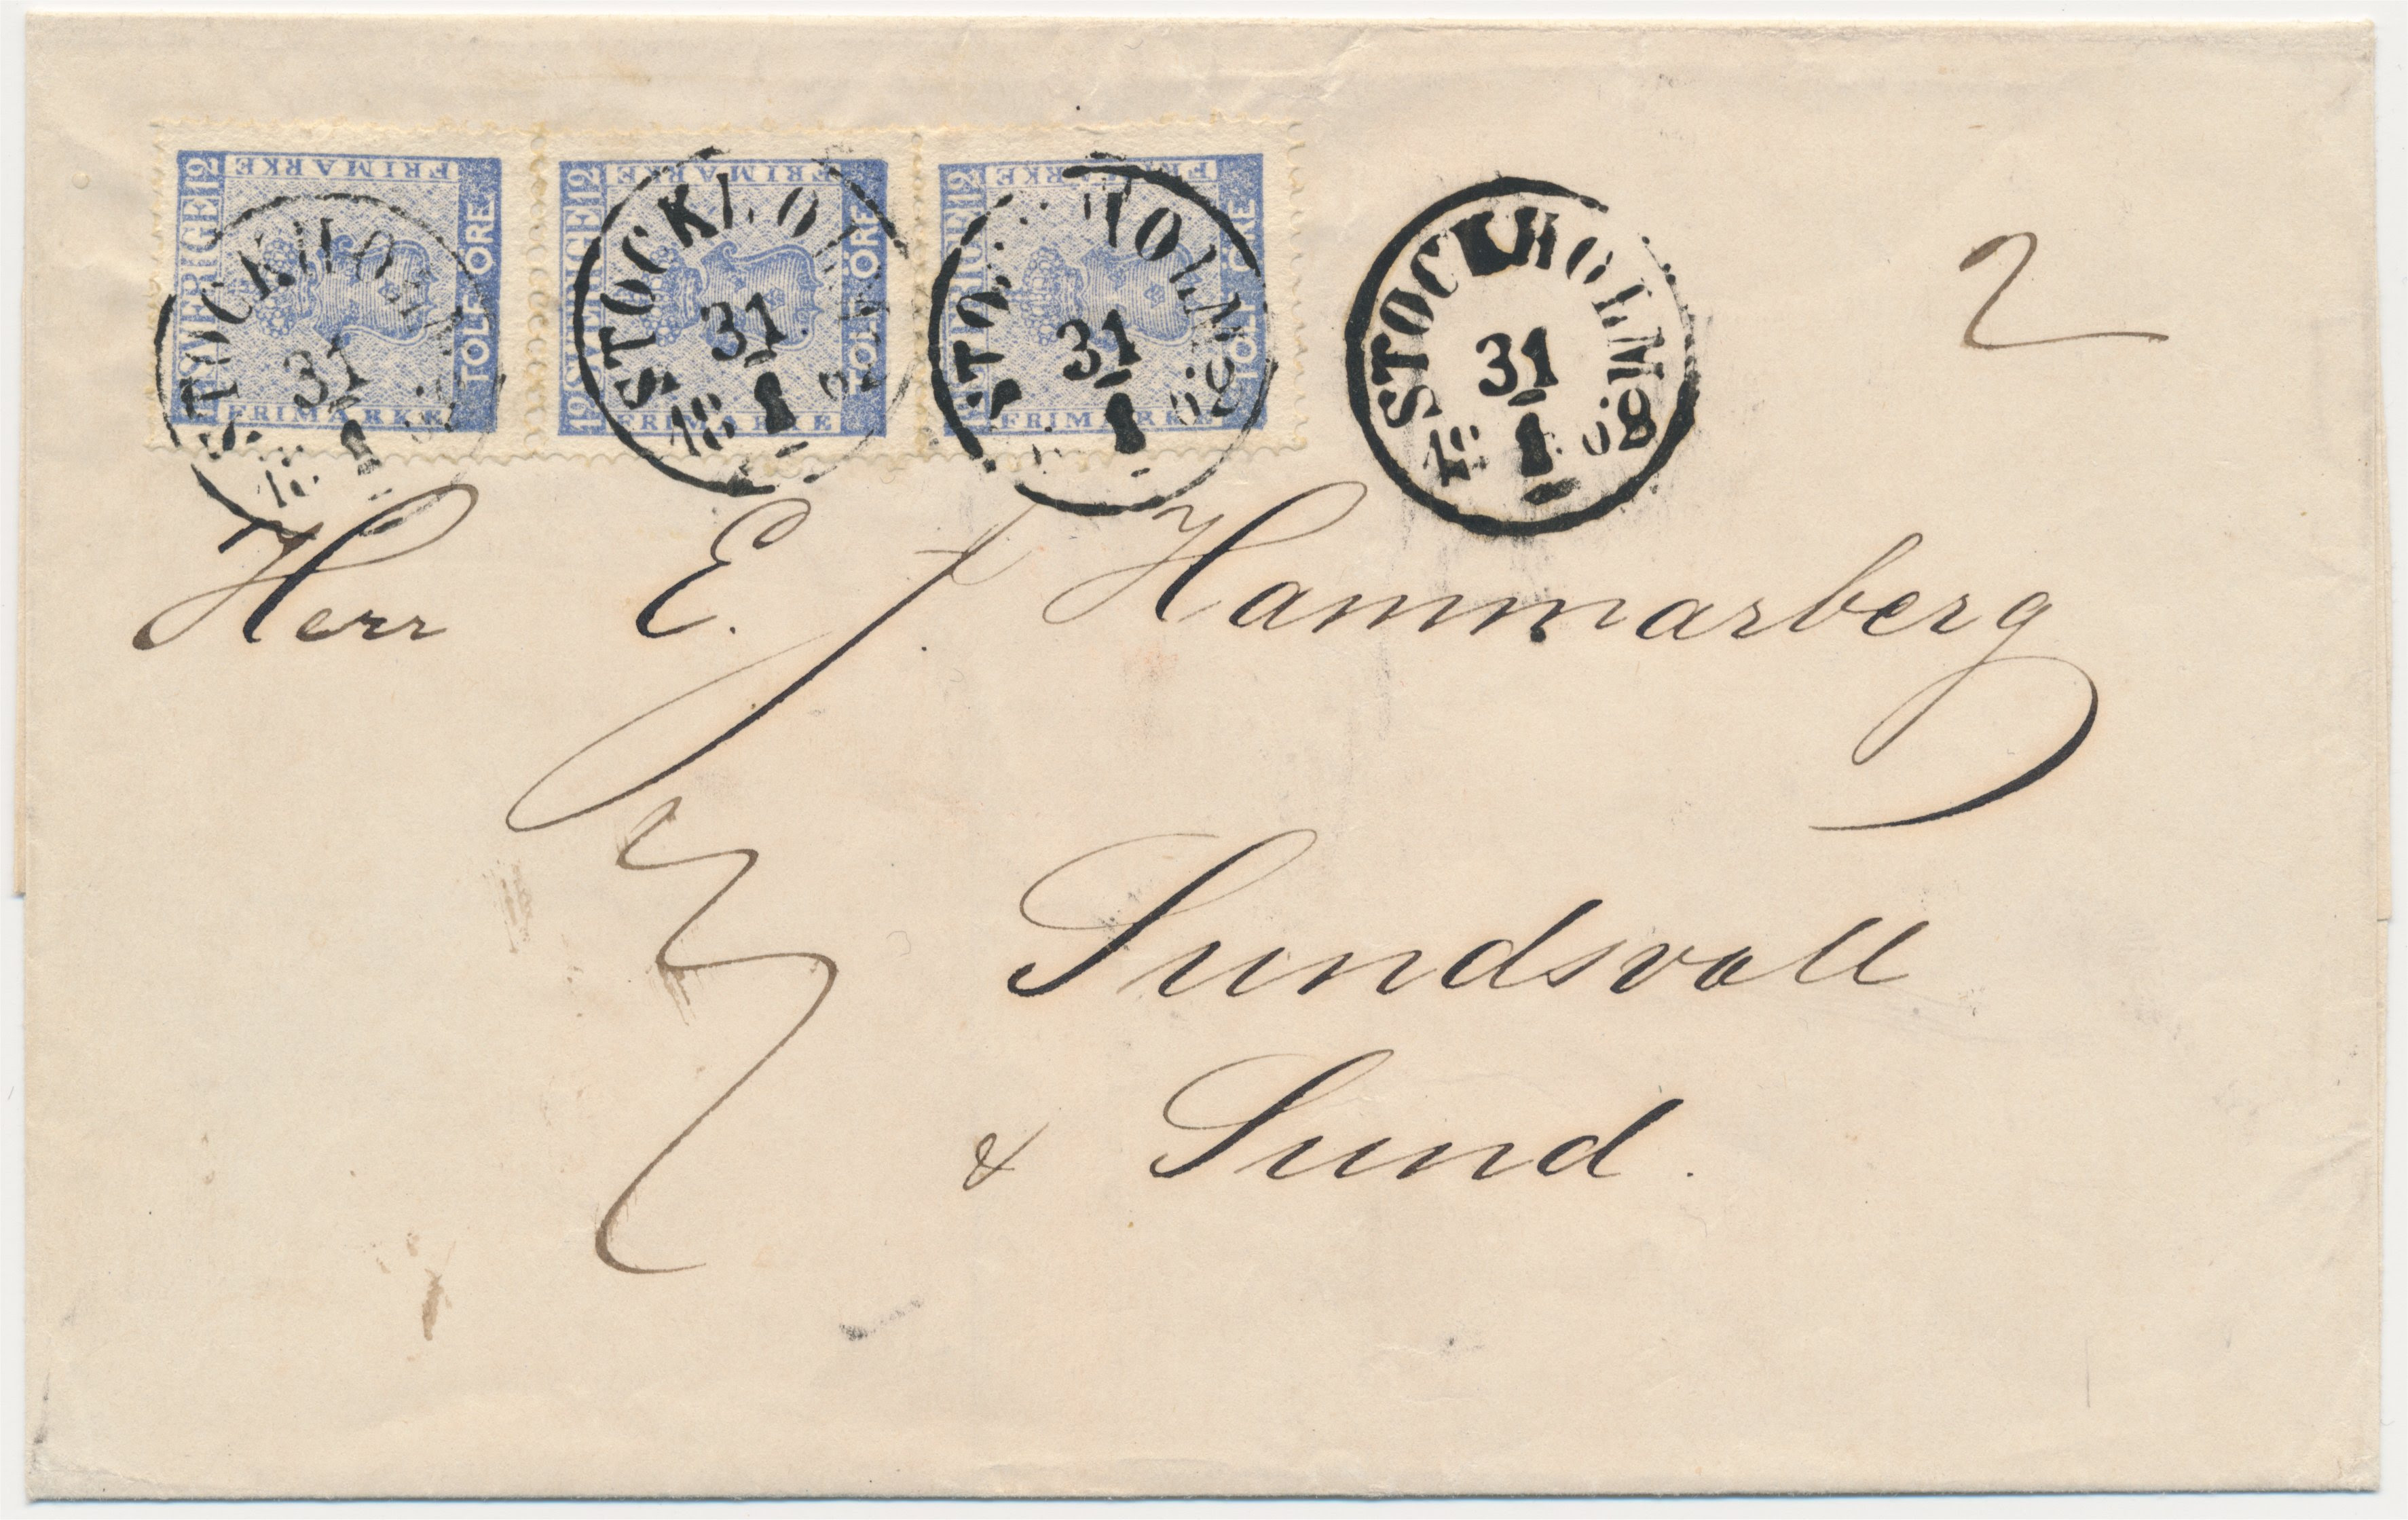 12 SVERIGE 12 FRIMARKE TOLF ÖRE FRIMARKE
12 SVERIGE 12 FRIMARKE TOLF ÖRE FRIMARKE
SVERIGE 12 FRIMARKE TOLF ÖRE FRIMARKE
STOCKHOLM 31 1
STOCKHOLM 31 1 18
STOCKHOLM 31 1 68
STOCKHOLM 31 1 1868
2
Herr E. J. Hammarberg
Sundsvall
& Sund.